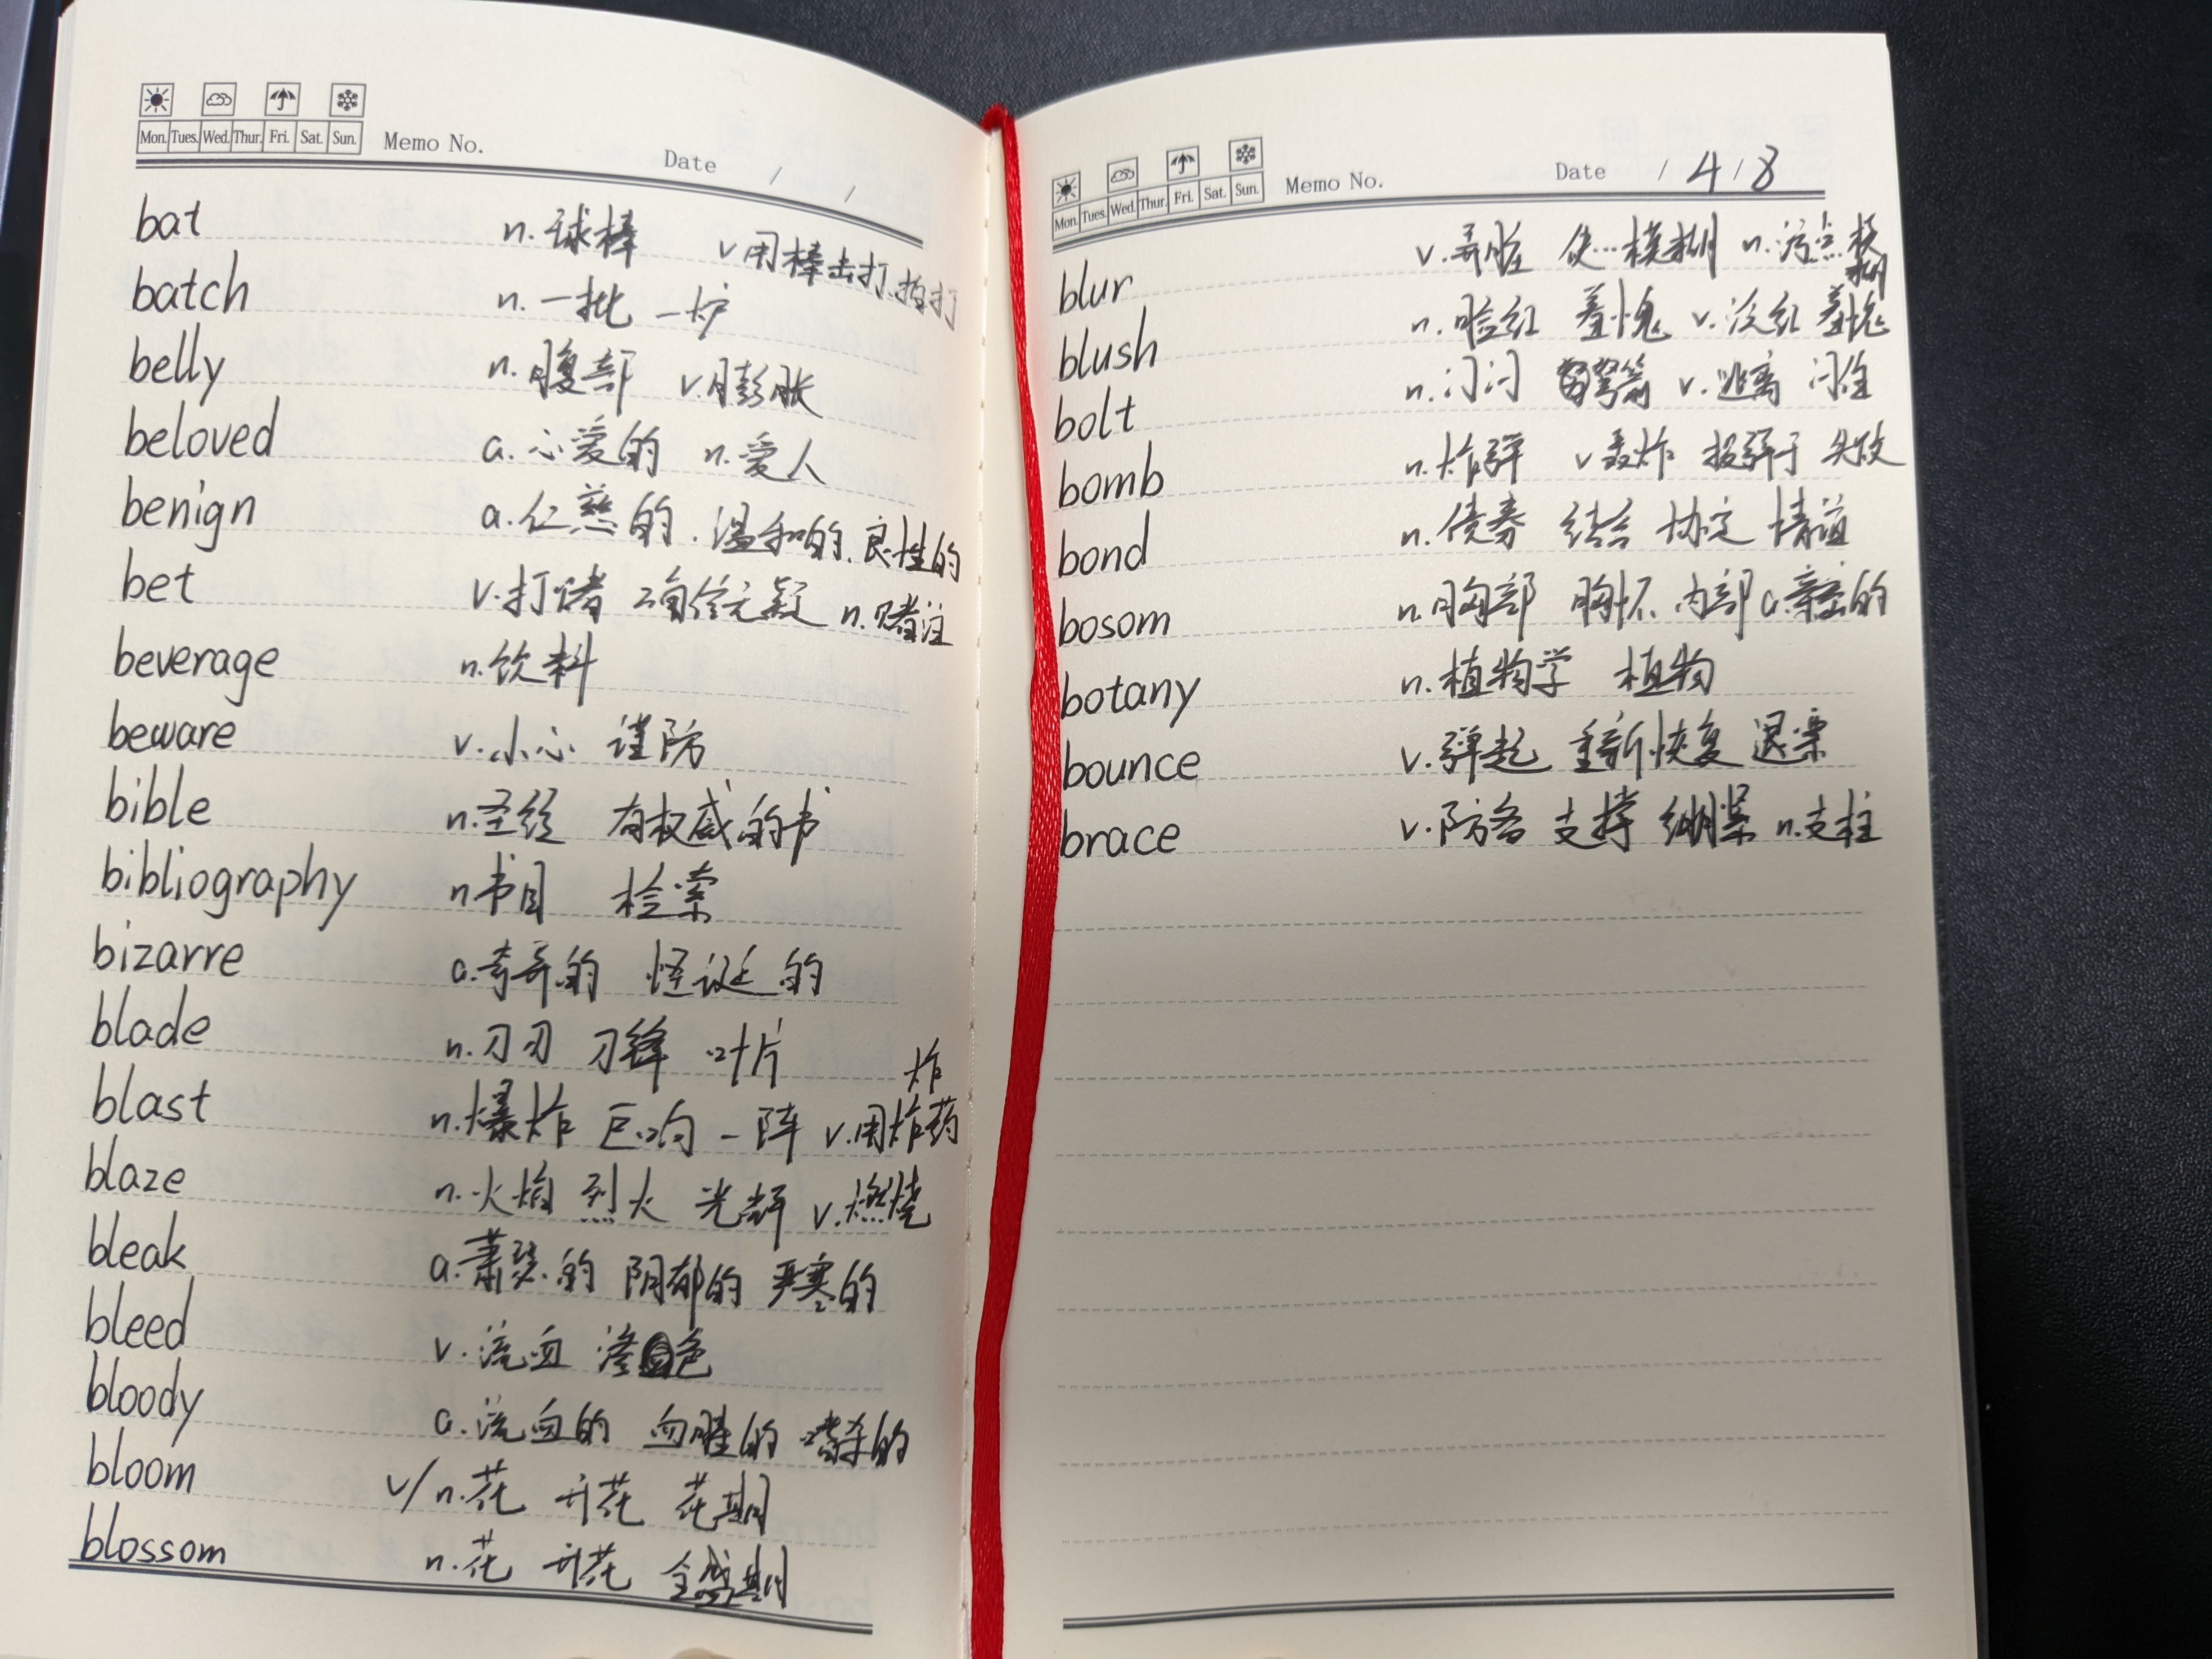 Mon. Tues. Wed. Thur. Fri. Sat. Sun. Memo No. Date / /
bat n. 球棒 v 用棒击打.拍打
batch n. 一批 一炉
belly n. 腹部 v.膨胀
beloved a. 心爱的 n. 爱人
benign a. 仁慈的. 温和的. 良性的
bet v. 打赌 确信无疑 n. 赌注
beverage n. 饮料
beware v. 小心 谨防
bible n. 圣经 有权威的书
bibliography n 书目 检索
bizarre a. 奇异的 怪诞的
blade n. 刀刃 刀锋 叶片
blast n. 爆炸 巨响 一阵 v. 用炸药炸
blaze n. 火焰 烈火 光辉 v. 燃烧
bleak a. 萧瑟的 阴郁的 严寒的
bleed v. 流血 渗色
bloody a. 流血的 血腥的 嗜杀的
bloom v/n. 花 开花 花期
blossom n. 花 开花 全盛期
Mon. Tues. Wed. Thur. Fri. Sat. Sun. Memo No. Date / 4 / 8
blur v. 弄脏 使…模糊 n. 污点 模糊
blush n. 脸红 羞愧 v. 红 羞愧
bolt n. 闩 弩箭 v. 逃离 闩住
bomb n. 炸弹 v 轰炸 投弹于 失败
bond n. 债券 结合 协定 情谊
bosom n. 胸部 胸怀 内部 a. 亲密的
botany n. 植物学 植物
bounce v. 弹起 重新恢复 退票
brace v. 防备 支撑 绷紧 n. 支柱